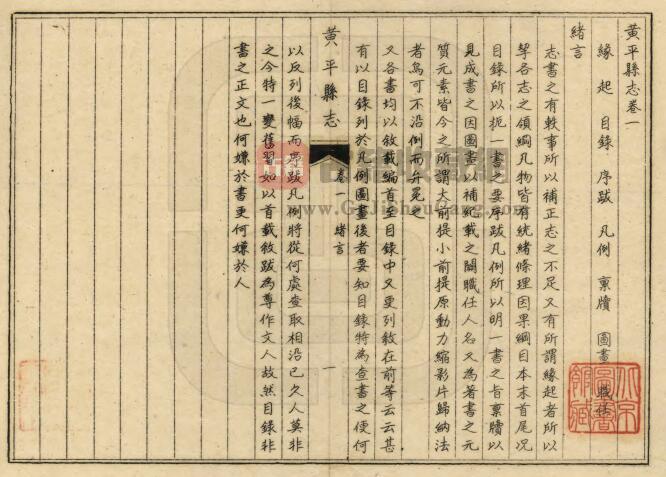 黃平縣志卷一
緣起 目錄 序跋 凡例 稟牘 圖畫 職任
緒言
志書之有軼事所以補正志之不足又有所謂緣起者所以
挈各志之領綱凡物皆有統緒條理因果綱目本末首尾況
目錄所以扼一書之要序跋凡例所以明一書之旨稟牘以
見成書之因圖畫以補紀載之闕職任人名又為著書之元
質元素皆今之所謂大前提小前提原動力縮影片歸納法
者烏可不沿例而弁冕之
又各書均以敘載編首至目錄中又更列敘在前等云云甚
有以目錄列於凡例圖畫後者要知目錄特為查書之便何
黃平縣志 卷一 緒言 一
以反列後幅而序跋凡例將從何處查取相沿已久人莫非
之今特一變舊習如以首載敘跋為尊作文人故然目錄非
書之正文也何嫌於書更何嫌於人